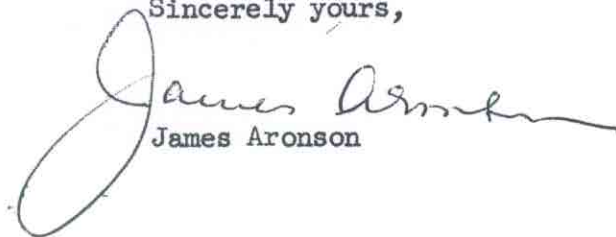 Sincerely yours,
James Aronson
James Aronson